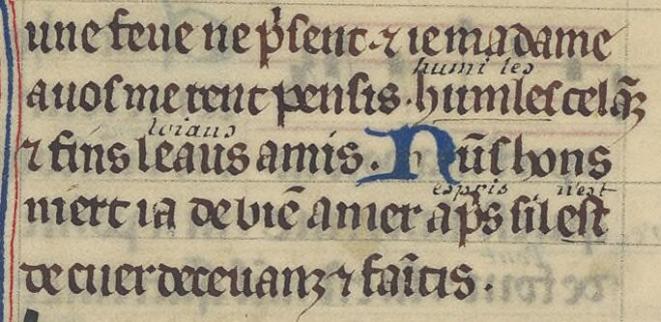 une feue ne p̃sent. ⁊ ie madame
humiles
auos me rent pensis. humles celãz
loiaus
⁊ fins leaus amis. Nũs hons
espris n'est
niert ia de biẽ amer ap̃s sil est
de cuer deceuanz ⁊ faĩtis.